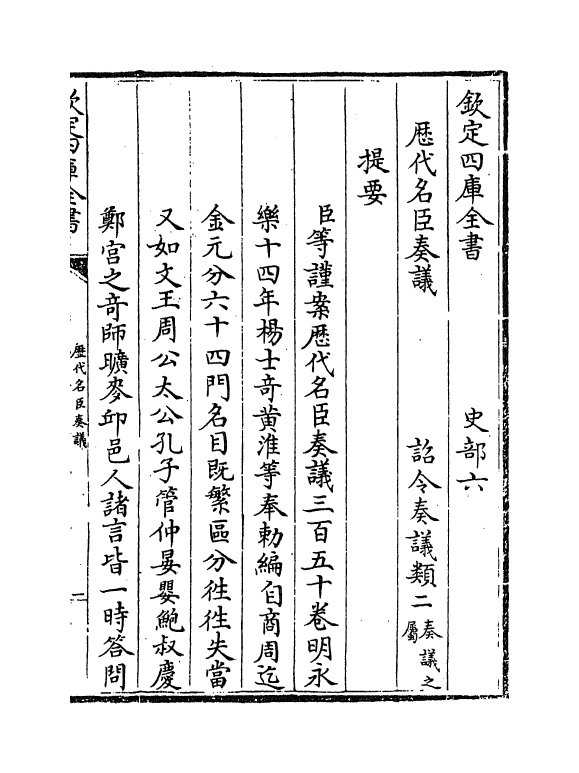 欽定四庫全書　史部六
歷代名臣奏議　詔令奏議類二奏議之屬
提要
臣等謹案歷代名臣奏議三百五十卷明永
樂十四年楊士竒黄淮等奉勅編自商周迄
金元分六十四門名目既繁區分徃徃失當
又如文王周公太公孔子管仲晏嬰鮑叔慶
鄭宫之竒師曠麥邱邑人諸言皆一時答問
欽定四庫全書
歷代名臣奏議